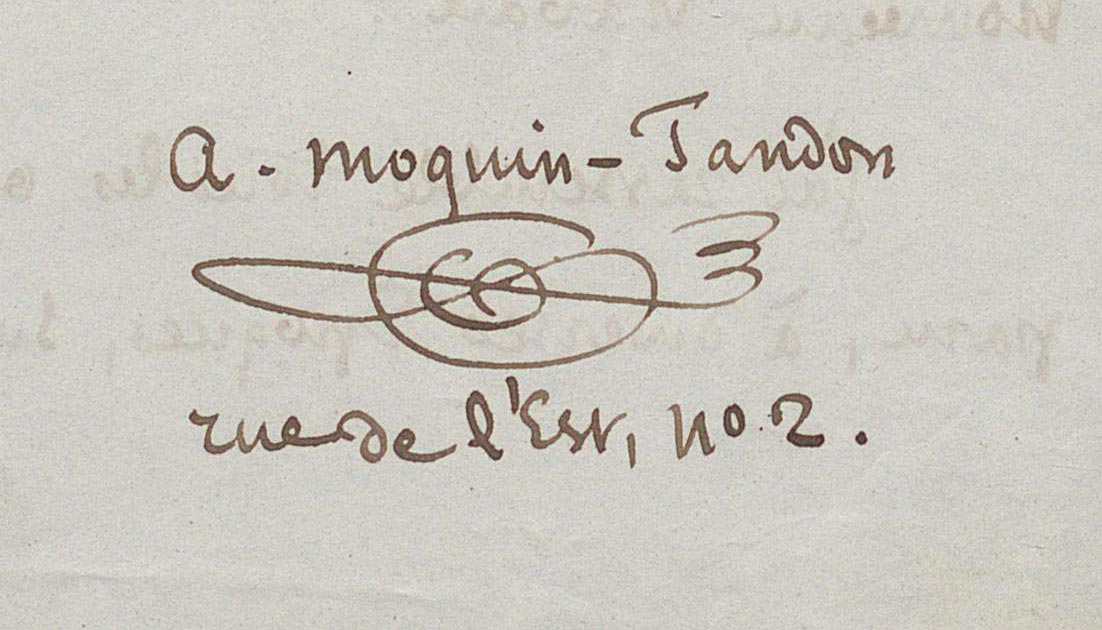 A. Moquin-Tandon
rue de l'Est, no. 2.